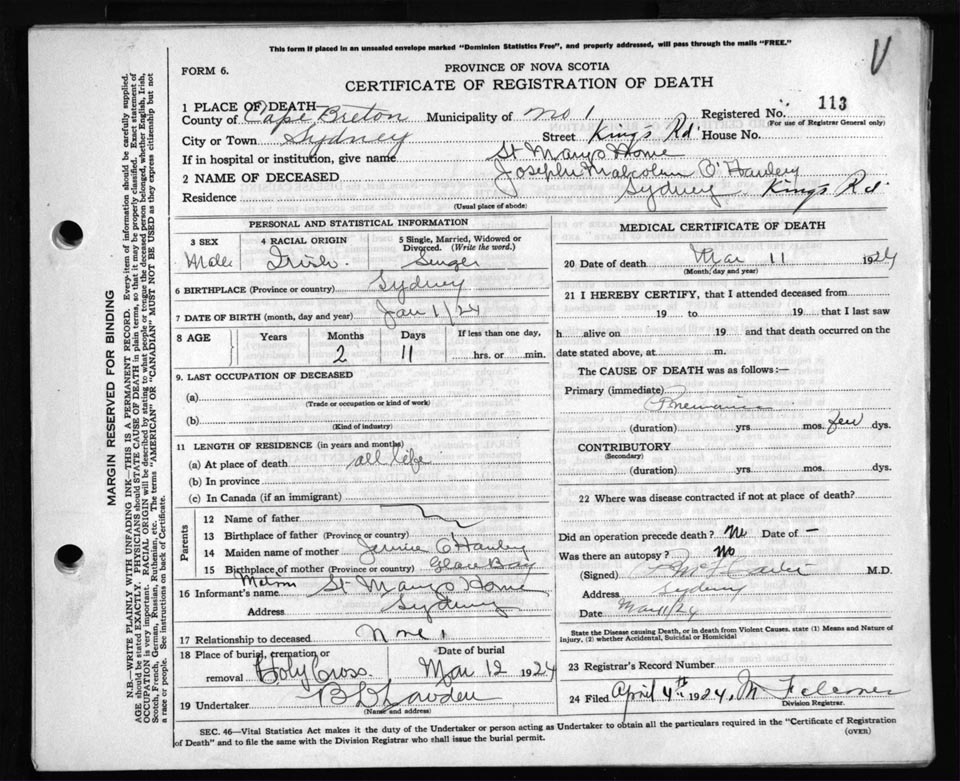 This form if placed in an unsealed envelope marked "Dominion Statistics Free", and properly addressed, will pass through the mails "FREE."
V
FORM 6.
PROVINCE OF NOVA SCOTIA
CERTIFICATE OF REGISTRATION OF DEATH
1 PLACE OF DEATH—
County of Cape Breton Municipality of No 1 Registered No. 113
(For use of Registrar General only)
City or Town Sydney Street King's Rd. House No.
If in hospital or institution, give name St Marys Home
2 NAME OF DECEASED Joseph Malcolm O'Hanley
Residence Sydney King's Rd.
(Usual place of abode)
PERSONAL AND STATISTICAL INFORMATION
3 SEX 4 RACIAL ORIGIN 5 Single, Married, Widowed or Divorced. (Write the word.)
Male Irish Singer
6 BIRTHPLACE (Province or country) Sydney
7 DATE OF BIRTH (month, day and year) Jan 1/24
8 AGE Years Months Days If less than one day,
2 11 hrs. or min.
9. LAST OCCUPATION OF DECEASED
(a)
(Trade or occupation or kind of work)
(b)
(Kind of industry)
11 LENGTH OF RESIDENCE (in years and months)
(a) At place of death all life
(b) In province
(c) In Canada (if an immigrant)
Parents
12 Name of father
13 Birthplace of father (Province or country)
14 Maiden name of mother Jennie O'Hanley
15 Birthplace of mother (Province or country) Glace Bay
16 Informant's name St Marys Home
Address Sydney
17 Relationship to deceased None
18 Place of burial, cremation or removal Holy Cross Date of burial Mar 12 1924
19 Undertaker
(Name and address)
MEDICAL CERTIFICATE OF DEATH
20 Date of death Mar 11 1924
(Month, day and year)
21 I HEREBY CERTIFY, that I attended deceased from
19 to 19 that I last saw
h alive on 19 and that death occurred on the
date stated above, at m.
The CAUSE OF DEATH was as follows:—
Primary (immediate)
(duration) yrs. mos. few dys.
CONTRIBUTORY
(Secondary)
(duration) yrs. mos. dys.
22 Where was disease contracted if not at place of death?
Did an operation precede death? No Date of —
Was there an autopsy? No
(Signed) M.D.
Address Sydney
Date Mar 11/24
State the Disease causing Death, or in death from Violent Causes, state (1) Means and Nature of
injury, (2) whether Accidental, Suicidal or Homicidal
23 Registrar's Record Number
24 Filed April 4th 1924.
Division Registrar.
SEC. 46—Vital Statistics Act makes it the duty of the Undertaker or person acting as Undertaker to obtain all the particulars required in the "Certificate of Registration
of Death" and to file the same with the Division Registrar who shall issue the burial permit.
(OVER)
MARGIN RESERVED FOR BINDING
N.B.—WRITE PLAINLY WITH UNFADING INK—THIS IS A PERMANENT RECORD. Every item of information should be carefully supplied.
AGE should be stated EXACTLY. PHYSICIANS should STATE CAUSE OF DEATH in plain terms, so that it may be properly classified. Exact statement of
OCCUPATION is very important. RACIAL ORIGIN will be described by stating to what people or tongue the deceased person belonged, whether English, Irish,
Scotch, French, German, Russian, Ruthenian, etc. The terms "AMERICAN" OR "CANADIAN" MUST NOT BE USED as they express citizenship but not
a race or people. See instructions on back of Certificate.